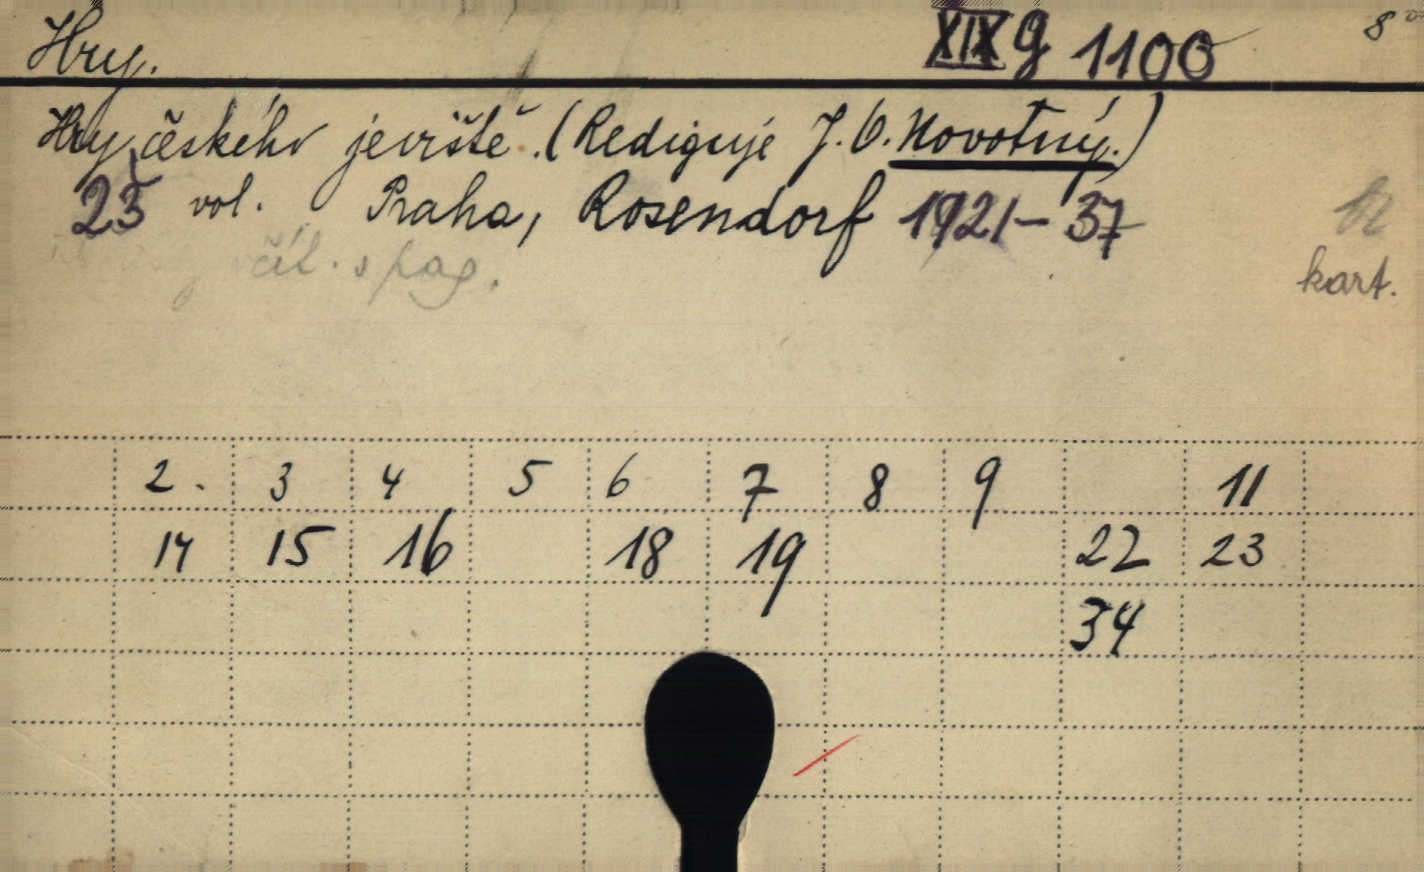 Hry. XIX g 1100 8°
Hry českého jeviště. (Rediguje J. O. Novotný.)
25 vol. Praha, Rosendorf 1921-37
čít. s pag.
kart.
2. 3 4 5 6 7 8 9 11
14 15 16 18 19 22 23
34